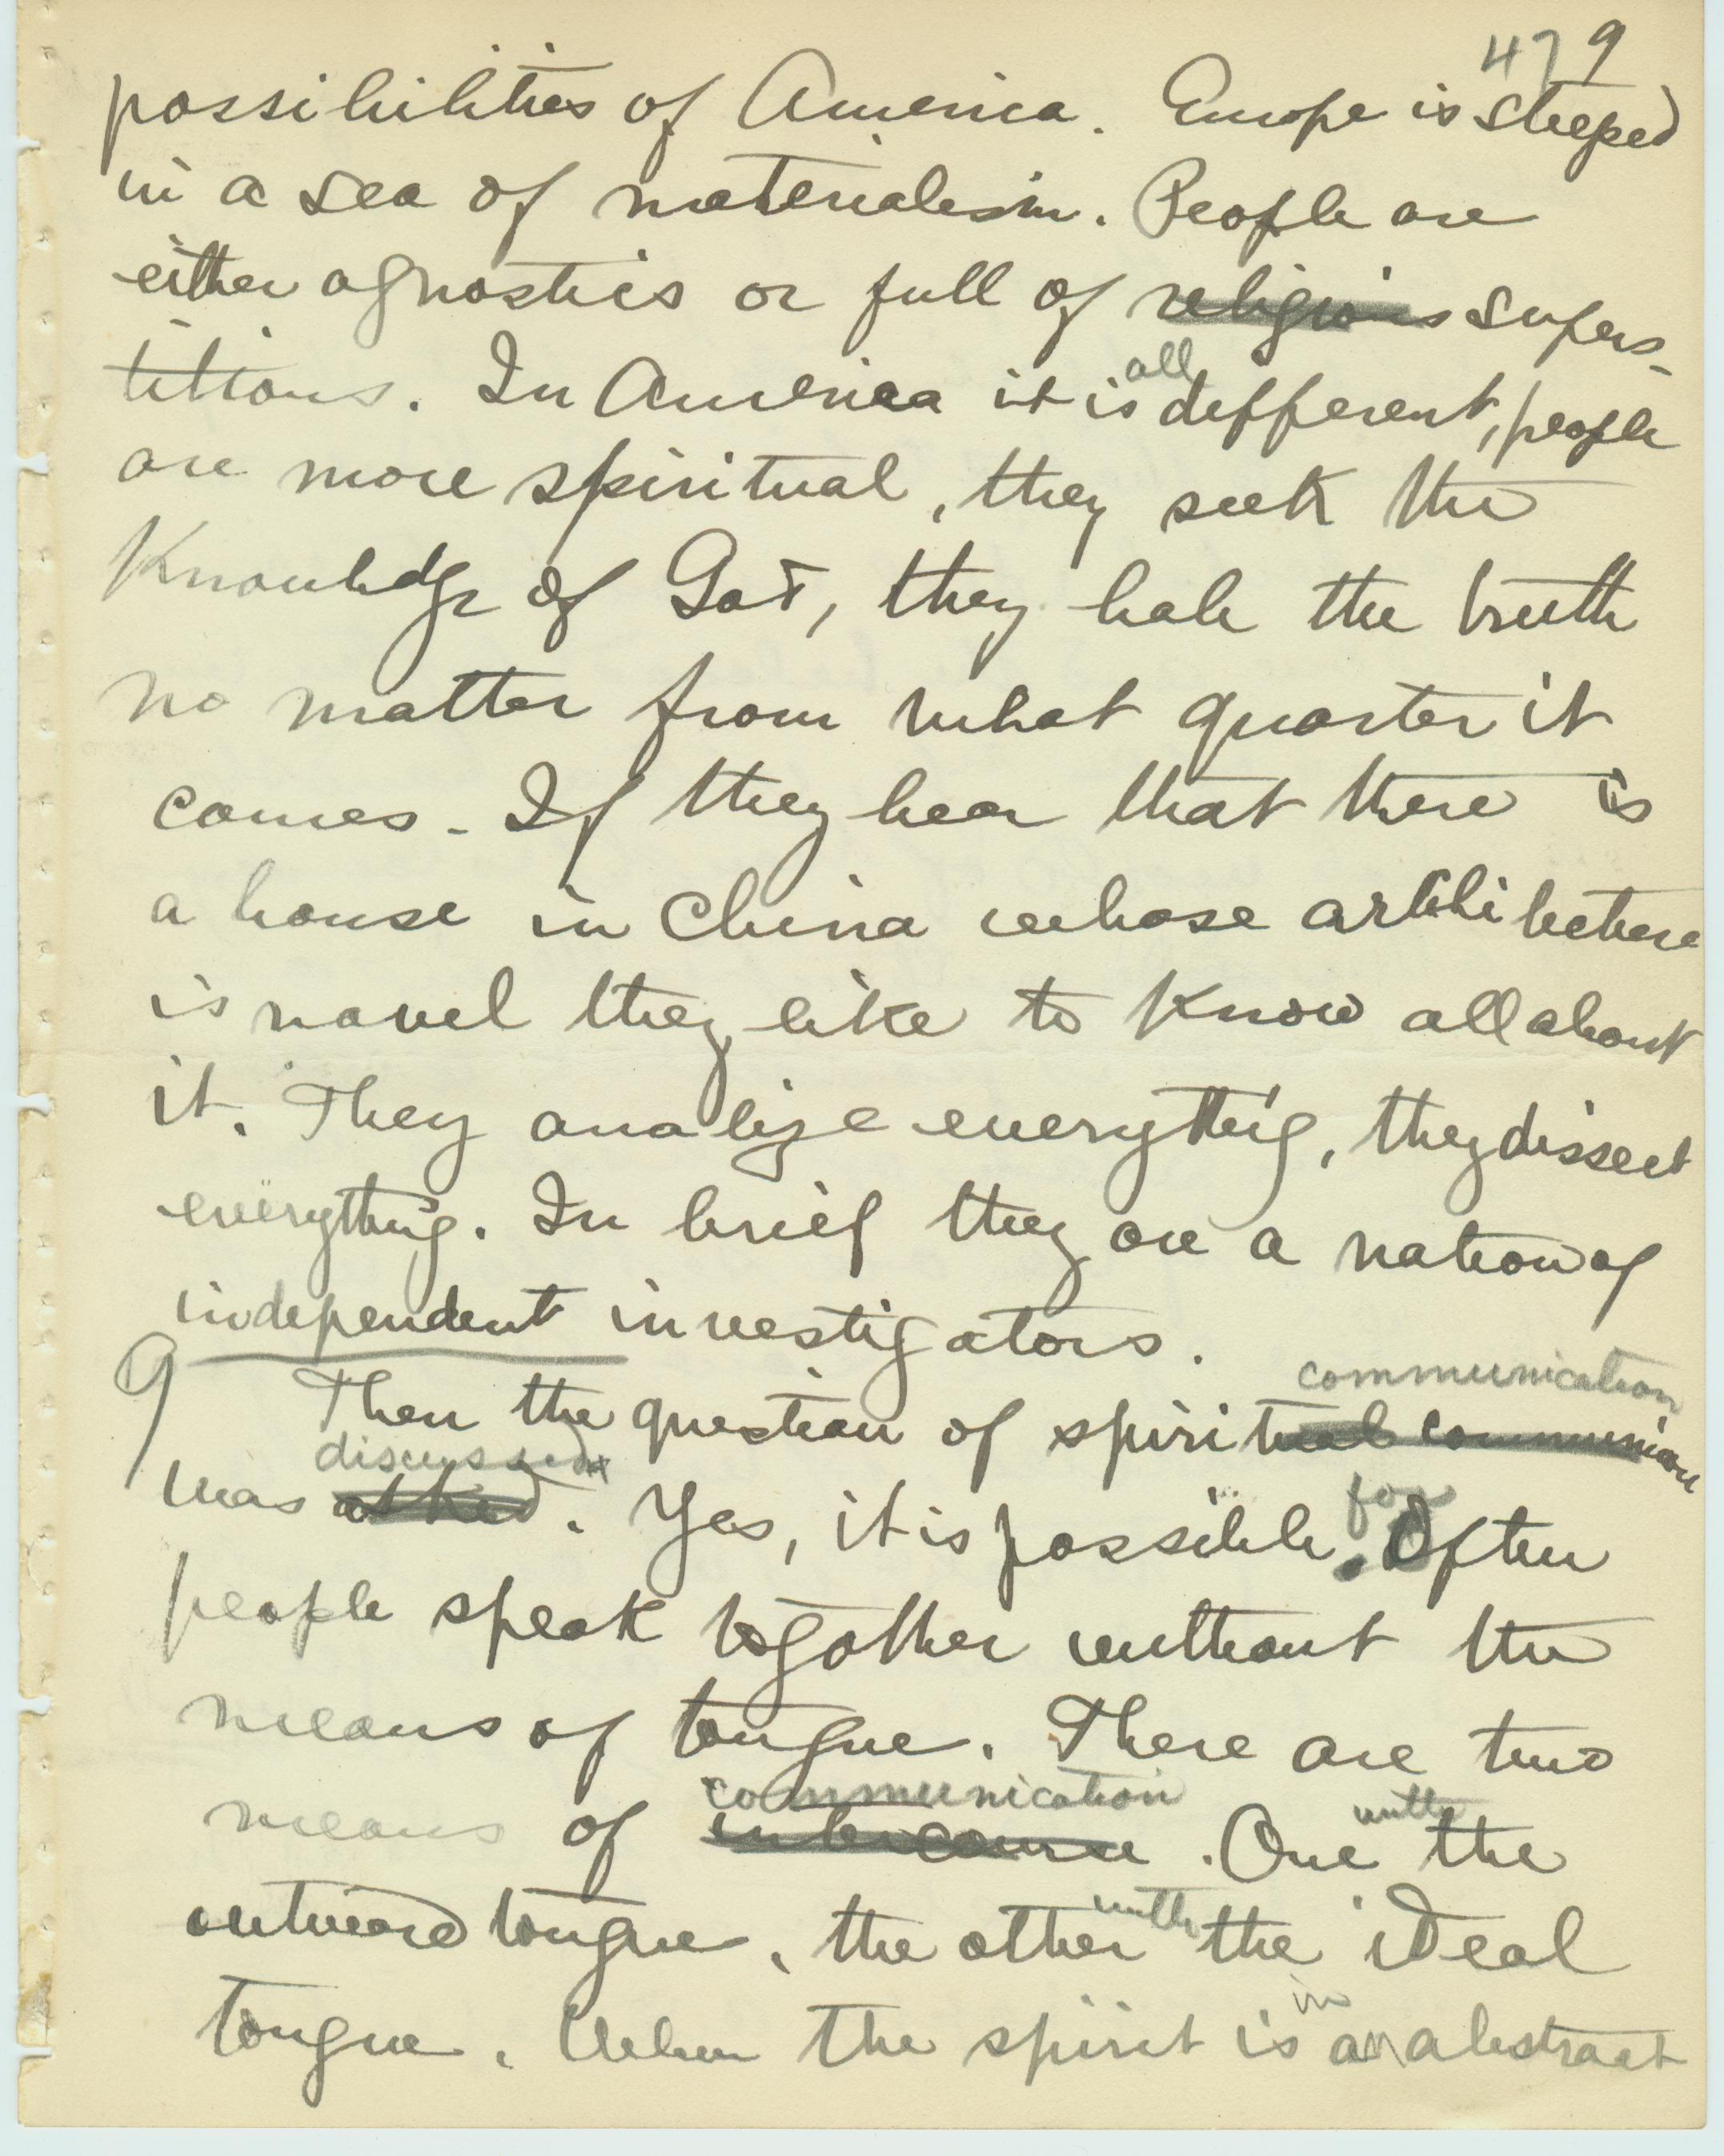 479
possibilities of America. Europe is steeped
in a sea of materialism. People are
either agnostics or full of religious supers-
titions. In America it is all different, people
are more spiritual, they seek the
Knowledge of God, they hale the truth
no matter from what quarter it
comes. If they hear that there is
a house in China whose architecture
is novel they like to Know all about
it. They analize everything, they dissect
everything. In brief they are a nation of
independent investigators.
communication
9 Then the question of spiritual communion
discussed
was asked. Yes, it is possible. for Often
people speak together without the
means of tongue. There are two
communication
means of intercourse. One with the
outward tongue, the other with the ideal
tongue. When the spirit is in an abstract